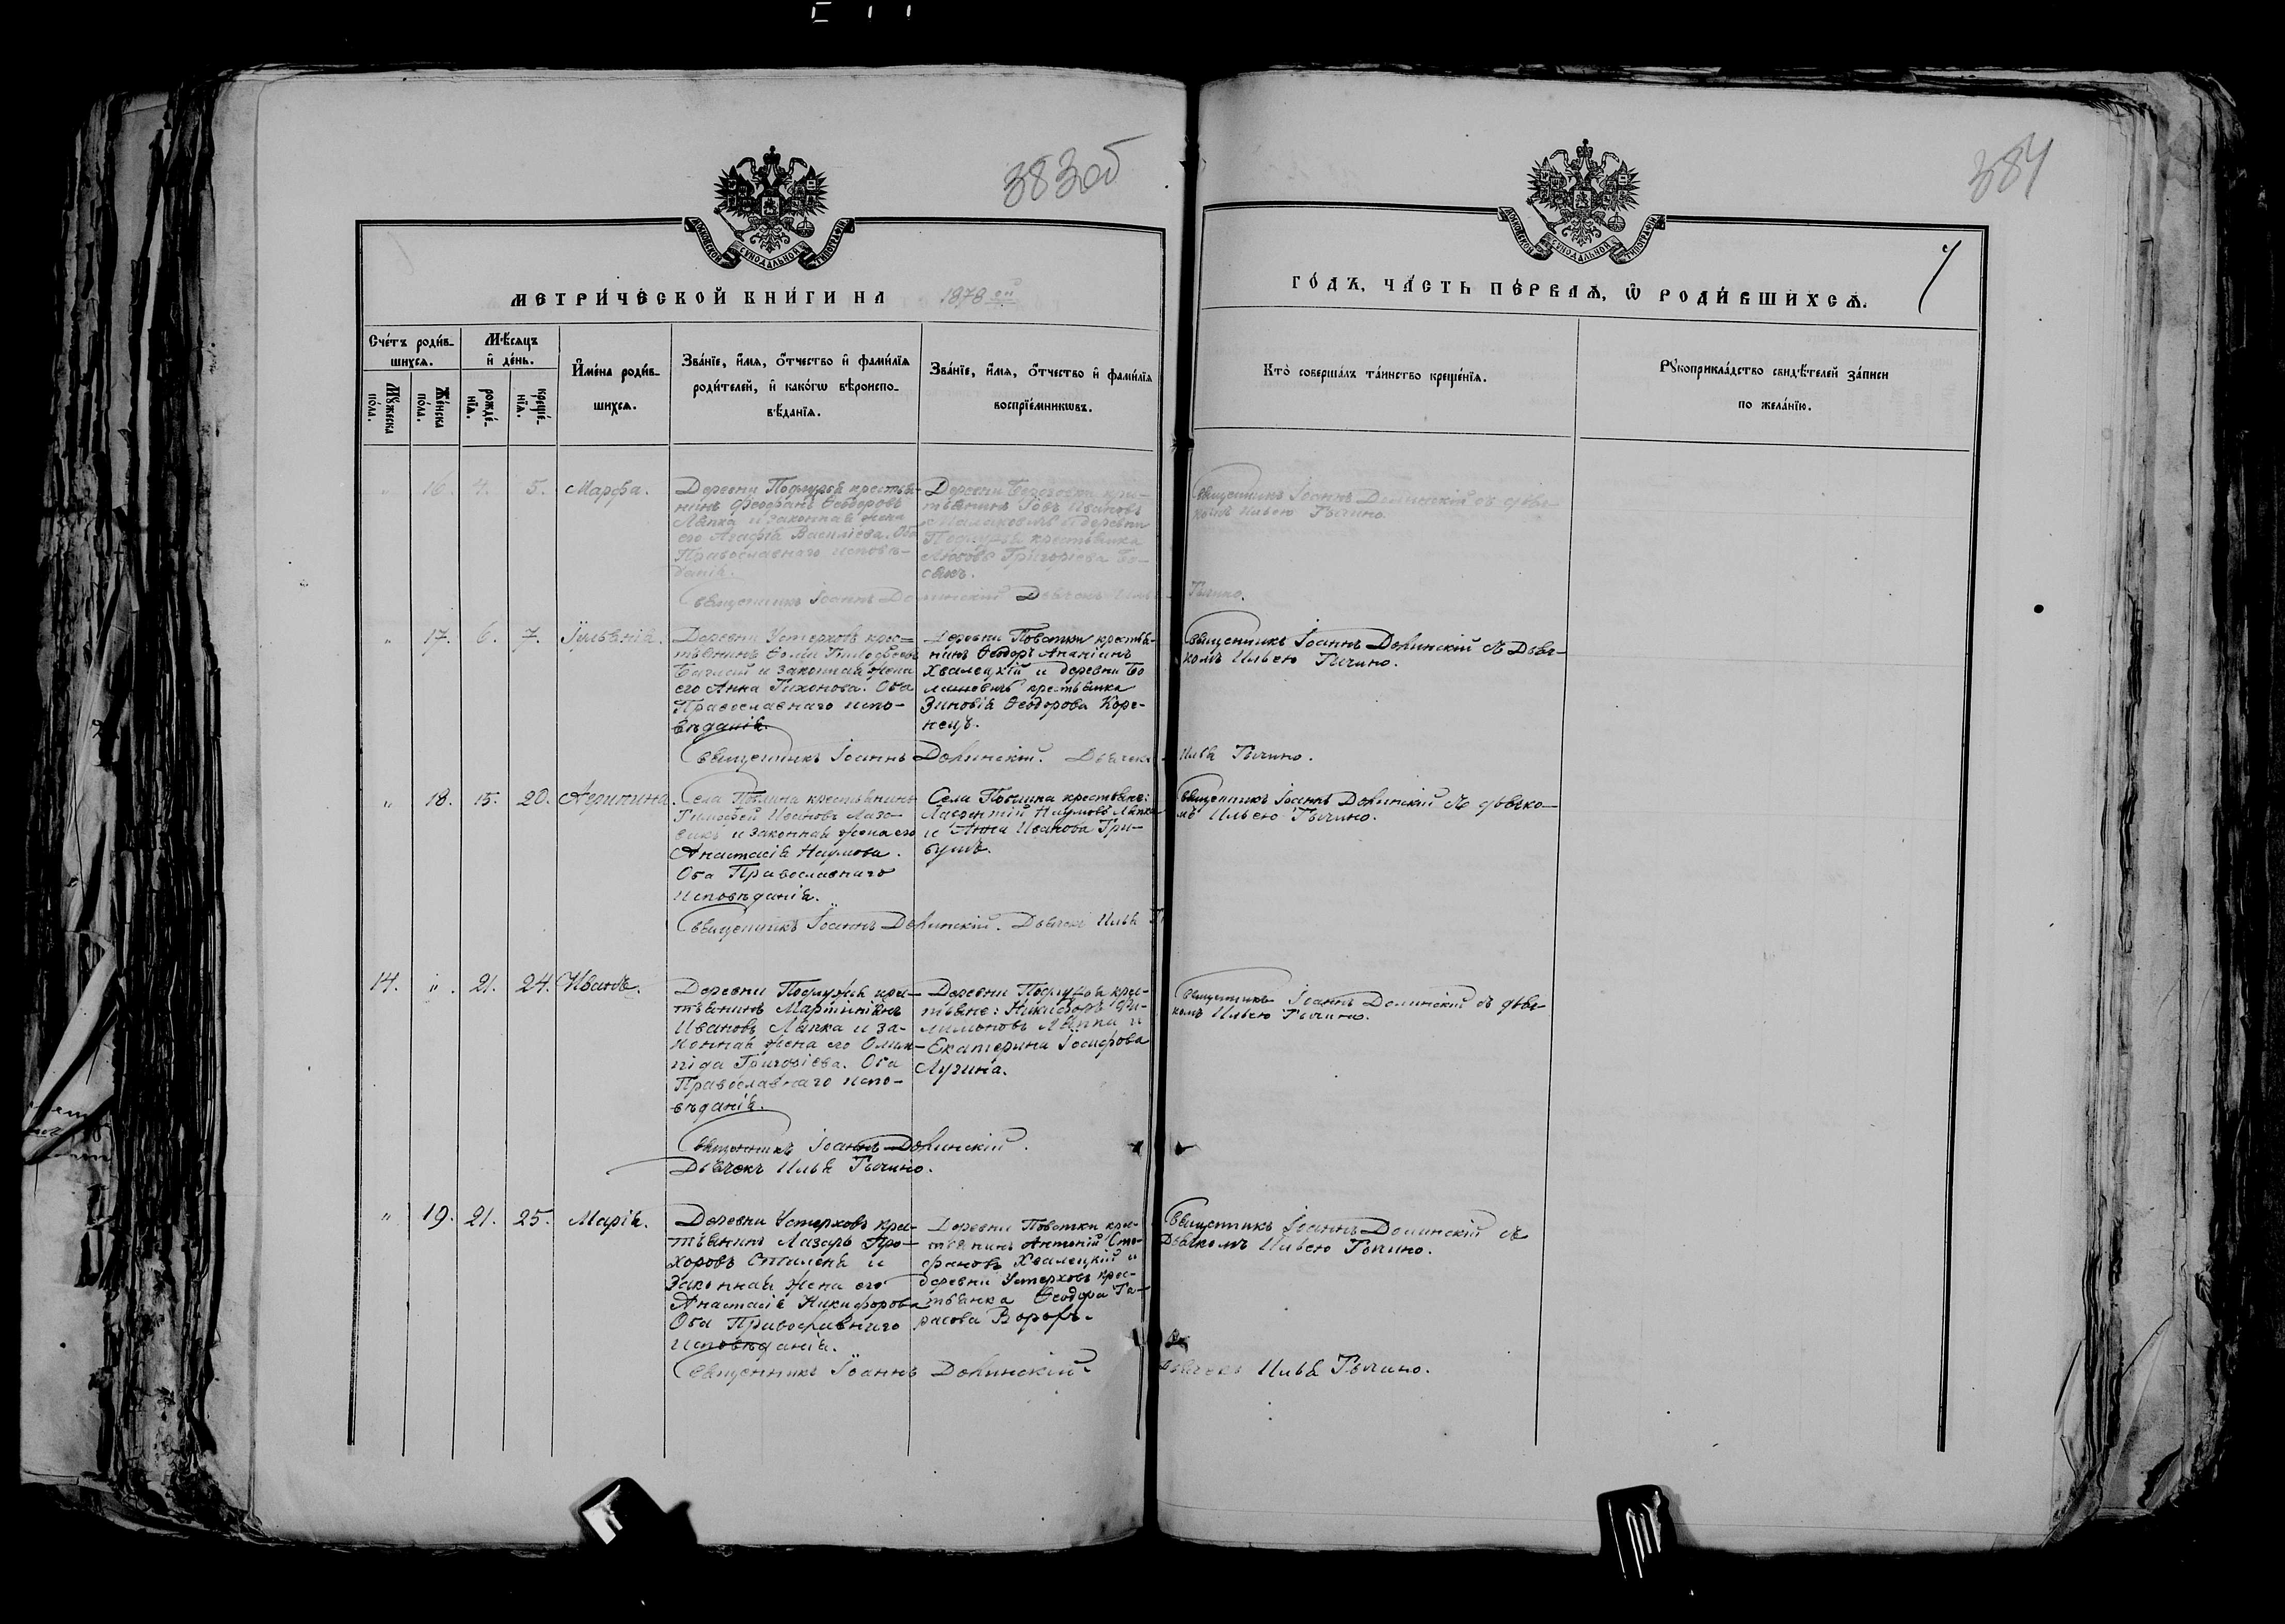 383об
384
МОСКОВСКОЙ СѴНОДАЛЬНОЙ ТИПОГРАФІИ
МОСКОВСКОЙ СѴНОДАЛЬНОЙ ТИПОГРАФІИ
МЕТРИ́ЧЕСКОЙ КНИ́ГИ НА 1878 ой
ГО́ДЪ, ЧА́СТЬ ПЕ́РВАѦ, Ѡ҆ РОДИ́ВШИХСѦ.
Сче́тъ роди́в-
шихсѧ.
Мꙋ́жеска
по́ла.
Же́нска
по́ла.
Мѣ́сѧцъ
и҆ де́нь.
рожде́-
нїѧ.
креще́-
нїѧ.
И҆мена̀ роди́в-
шихсѧ.
Зва́нїе, и҆́мѧ, ѻ҆́тчество и҆ фами́лїѧ
роди́телей, и҆ како́гѡ вѣроиспо-
вѣ́данїѧ.
Зва́нїе, и҆́мѧ, ѻ҆́тчество и҆ фами́лїѧ
воспрїе́мникѡвъ.
Кто̀ соверша́лъ та́инство креще́нїѧ.
Рꙋкоприкла́дство свидѣ́телей за́писи
по жела́нїю.
" 16. 4. 5. Марфа.
Деревни крестья-
нинъ Феофанъ Ѳеодоровъ
Ляпка и законная жена
его Агафія Василіева. Оба
Православнаго исповѣ-
данія.
Деревни кре-
стьянинъ Іовъ Ивановъ
и деревни
крестьянка
Любовь Григоріева Бо-
сакъ.
Священникъ Іоаннъ Долинскій съ дьяч-
комъ Ильею Тычино.
Священникъ Іоаннъ Долинскій Дьячекъ Илья Тычино.
" 17. 6. 7. Іуліанія.
Деревни Устерховъ крес-
тьянинъ Ѳома
и законная жена
его Анна Тихонова. Оба
Православнаго испо-
вѣданія.
Деревни Повстки крестья-
нинъ Ѳеодоръ Ананіинъ
Хвалецкій и деревни Бо
лашевичъ крестьянка
Зиновія Ѳеодорова Коре-
нецъ.
Священникъ Іоаннъ Долинскій съ Дьяч-
комъ Ильею Тычино.
Священникъ Іоаннъ Долинскій. Дьячекъ Илья Тычино.
" 18. 15. 20. Агрипина.
Села крестьянинъ
Тимофей Ивановъ Лазо-
викъ и законная жена его
Анастасія Наумова.
Оба Православнаго
исповѣданія.
Села крестьяне:
Лаврентій Наумовъ Ляпка
и Анна Иванова Гри-
бушъ.
Священникъ Іоаннъ Долинскій съ дьячко-
мъ Ильею Тычино.
Священникъ Іоаннъ Долинскій. Дьячекъ Илья
14. " 21. 24. Иванъ.
Деревни Подлужья крес-
тьянинъ Мартиніянъ
Ивановъ Ляпка и за-
конная жена его Олим-
піда Григоріева. Оба
Православнаго испо-
вѣданія.
Деревни Подлужья крес-
тьяне: Никифоръ Фи-
лимоновъ Ляпка и
Екатерина Іосифова
Лучина.
Священникъ Іоаннъ Долинскій съ дьяч-
комъ Ильею Тычино.
Священникъ Іоаннъ Долинскій.
Дьячекъ Илья Тычино.
" 19. 21. 25. Марія.
Деревни Устерховъ крес-
тьянинъ Лазарь Про-
хоровъ и
законная жена его
Анастасія Никифорова
Оба Православнаго
исповѣданія.
Деревни Повстки крес-
тьянинъ Антоній Сте-
фановъ Хвалецкій и
деревни Устерховъ крес-
тьянка Ѳеодора Та-
расова
Священникъ Іоаннъ Долинскій съ
Дьячкомъ Ильею Тычино.
Священникъ Іоаннъ Долинскій. Дьячекъ Илья Тычино.